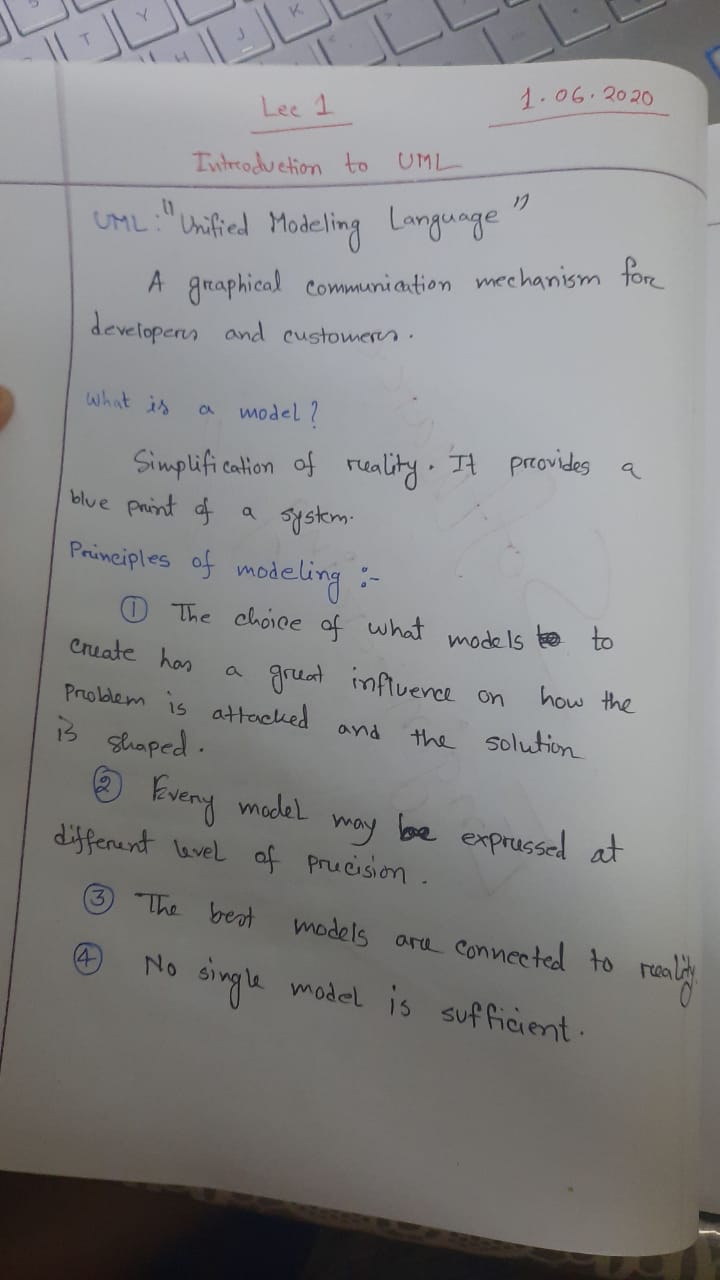 T
Y
H
J
K
Lec 1
1.06.2020
Introduction to UML
UML: "Unified Modeling Language"
A graphical communication mechanism for
developers and customers.
What is a model?
Simplification of reality. It provides a
blue print of a system.
Principles of modeling :-
① The choice of what models to
create has a great influence on how the
problem is attacked and the solution
is shaped.
② Every model may be expressed at
different level of precision.
③ The best models are connected to reality.
④ No single model is sufficient.